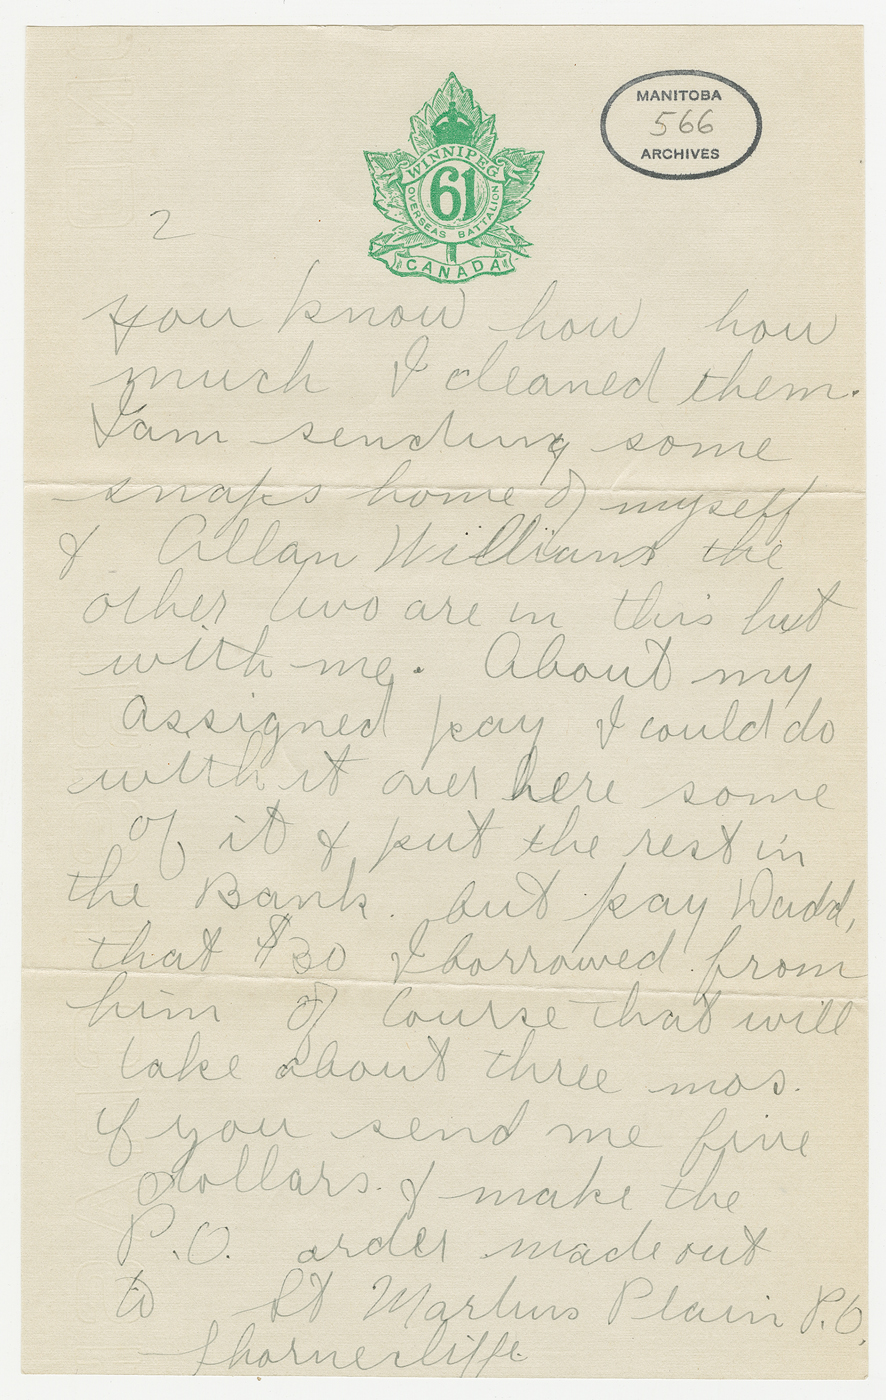 MANITOBA
566
ARCHIVES
WINNIPEG
61
OVERSEAS BATTALION
CANADA
2
you know how how
much I cleaned them.
I am sending some
snaps home of myself
& Allan Williams the
other two are in this hut
with me. About my
assigned pay I could do
with it over here some
of it & put the rest in
the Bank. but pay Dadd,
that $30 I borrowed from
him of Course that will
take about three mos.
if you send me five
dollars. & make the
P.O. order made out
to St Martins Plain P.O.
Shornecliffe